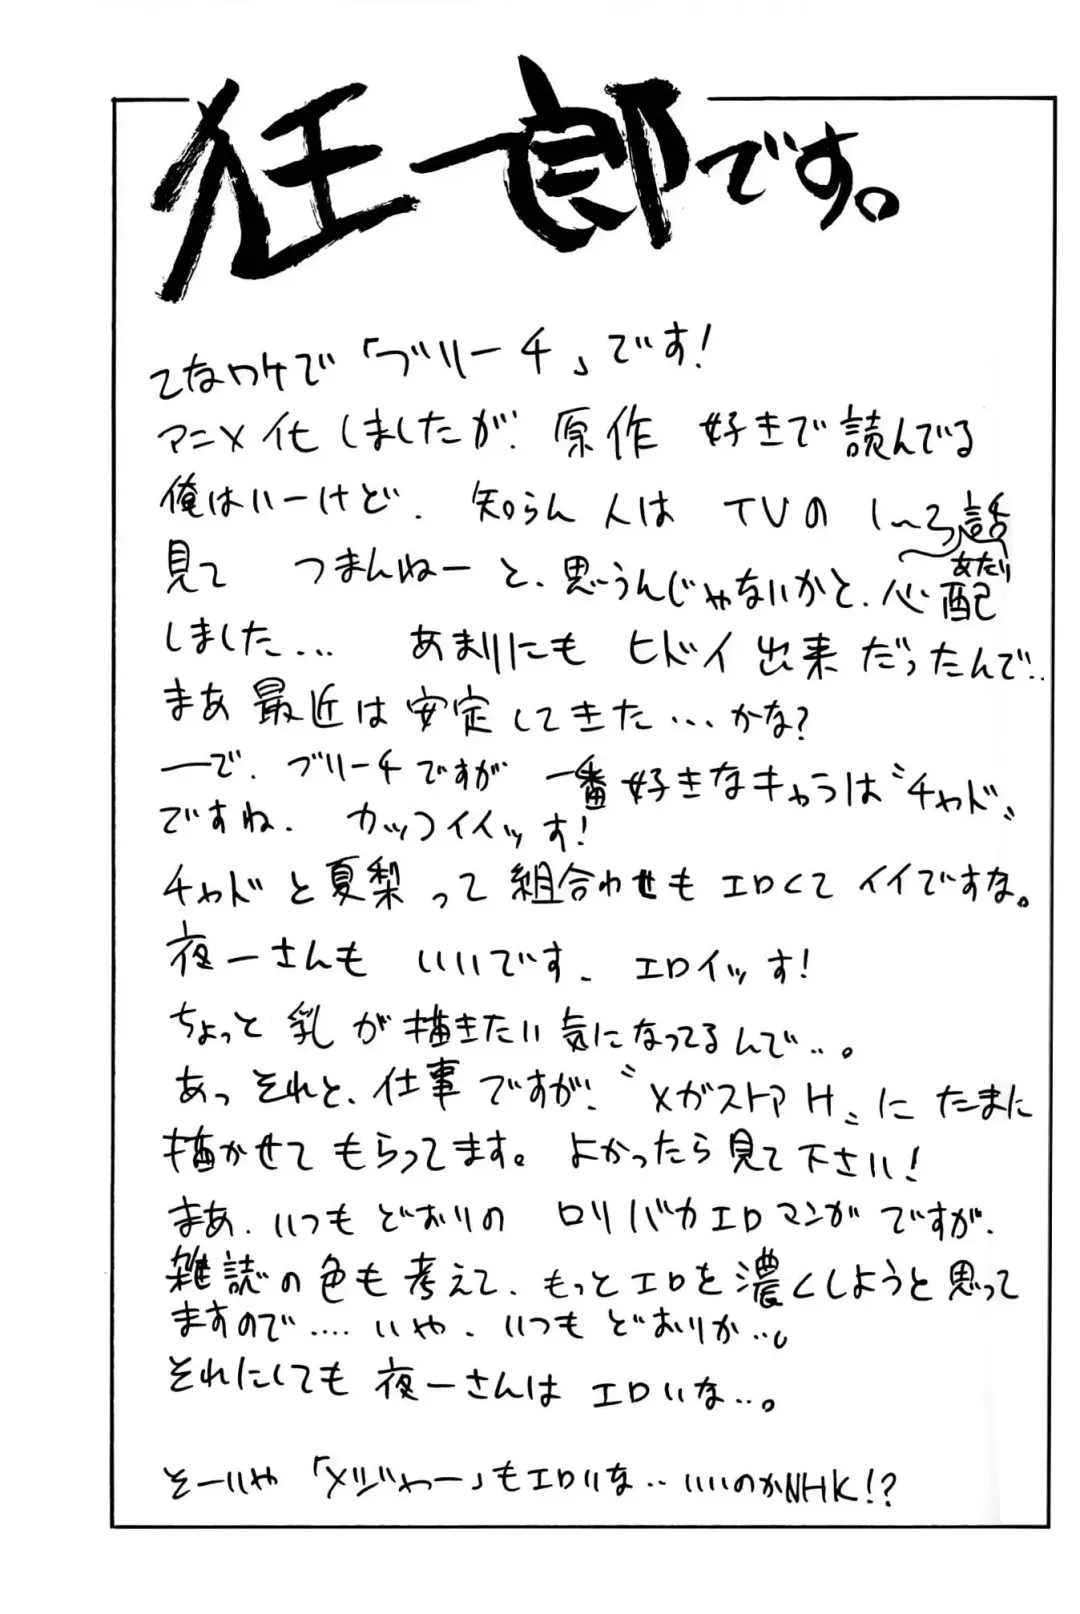 狂一郎です。
てなワケで「ブリーチ」です!
アニメ化しましたが、原作 好きで読んでる
俺はいーけど、知らん人は TVの 1〜3話
あたり
見て つまんねーと、思うんじゃないかと、心配
しました… あまりにも ヒドイ出来だったんで‥
まあ最近は安定してきた…かな?
ーで、ブリーチですが 一番好きなキャラは〝チャド〟
ですね、カッコイイッす!
チャドと夏梨って組合わせもエロくてイイですな。
夜一さんも いいです、エロイッす!
ちょっと乳が描きたい気になってるんで‥。
あっそれと、仕事ですが、〝メガストアH〟にたまに
描かせてもらってます。よかったら見て下さい!
まあ、いつもどおりの ロリバカエロマンガですが、
雑誌の色も考えて、もっとエロを濃くしようと思って
ますので…. いや、いつもどおりか‥。
それにしても夜一さんは エロいな‥。
そーいや「メジャー」もエロいな‥いいのかNHK!?